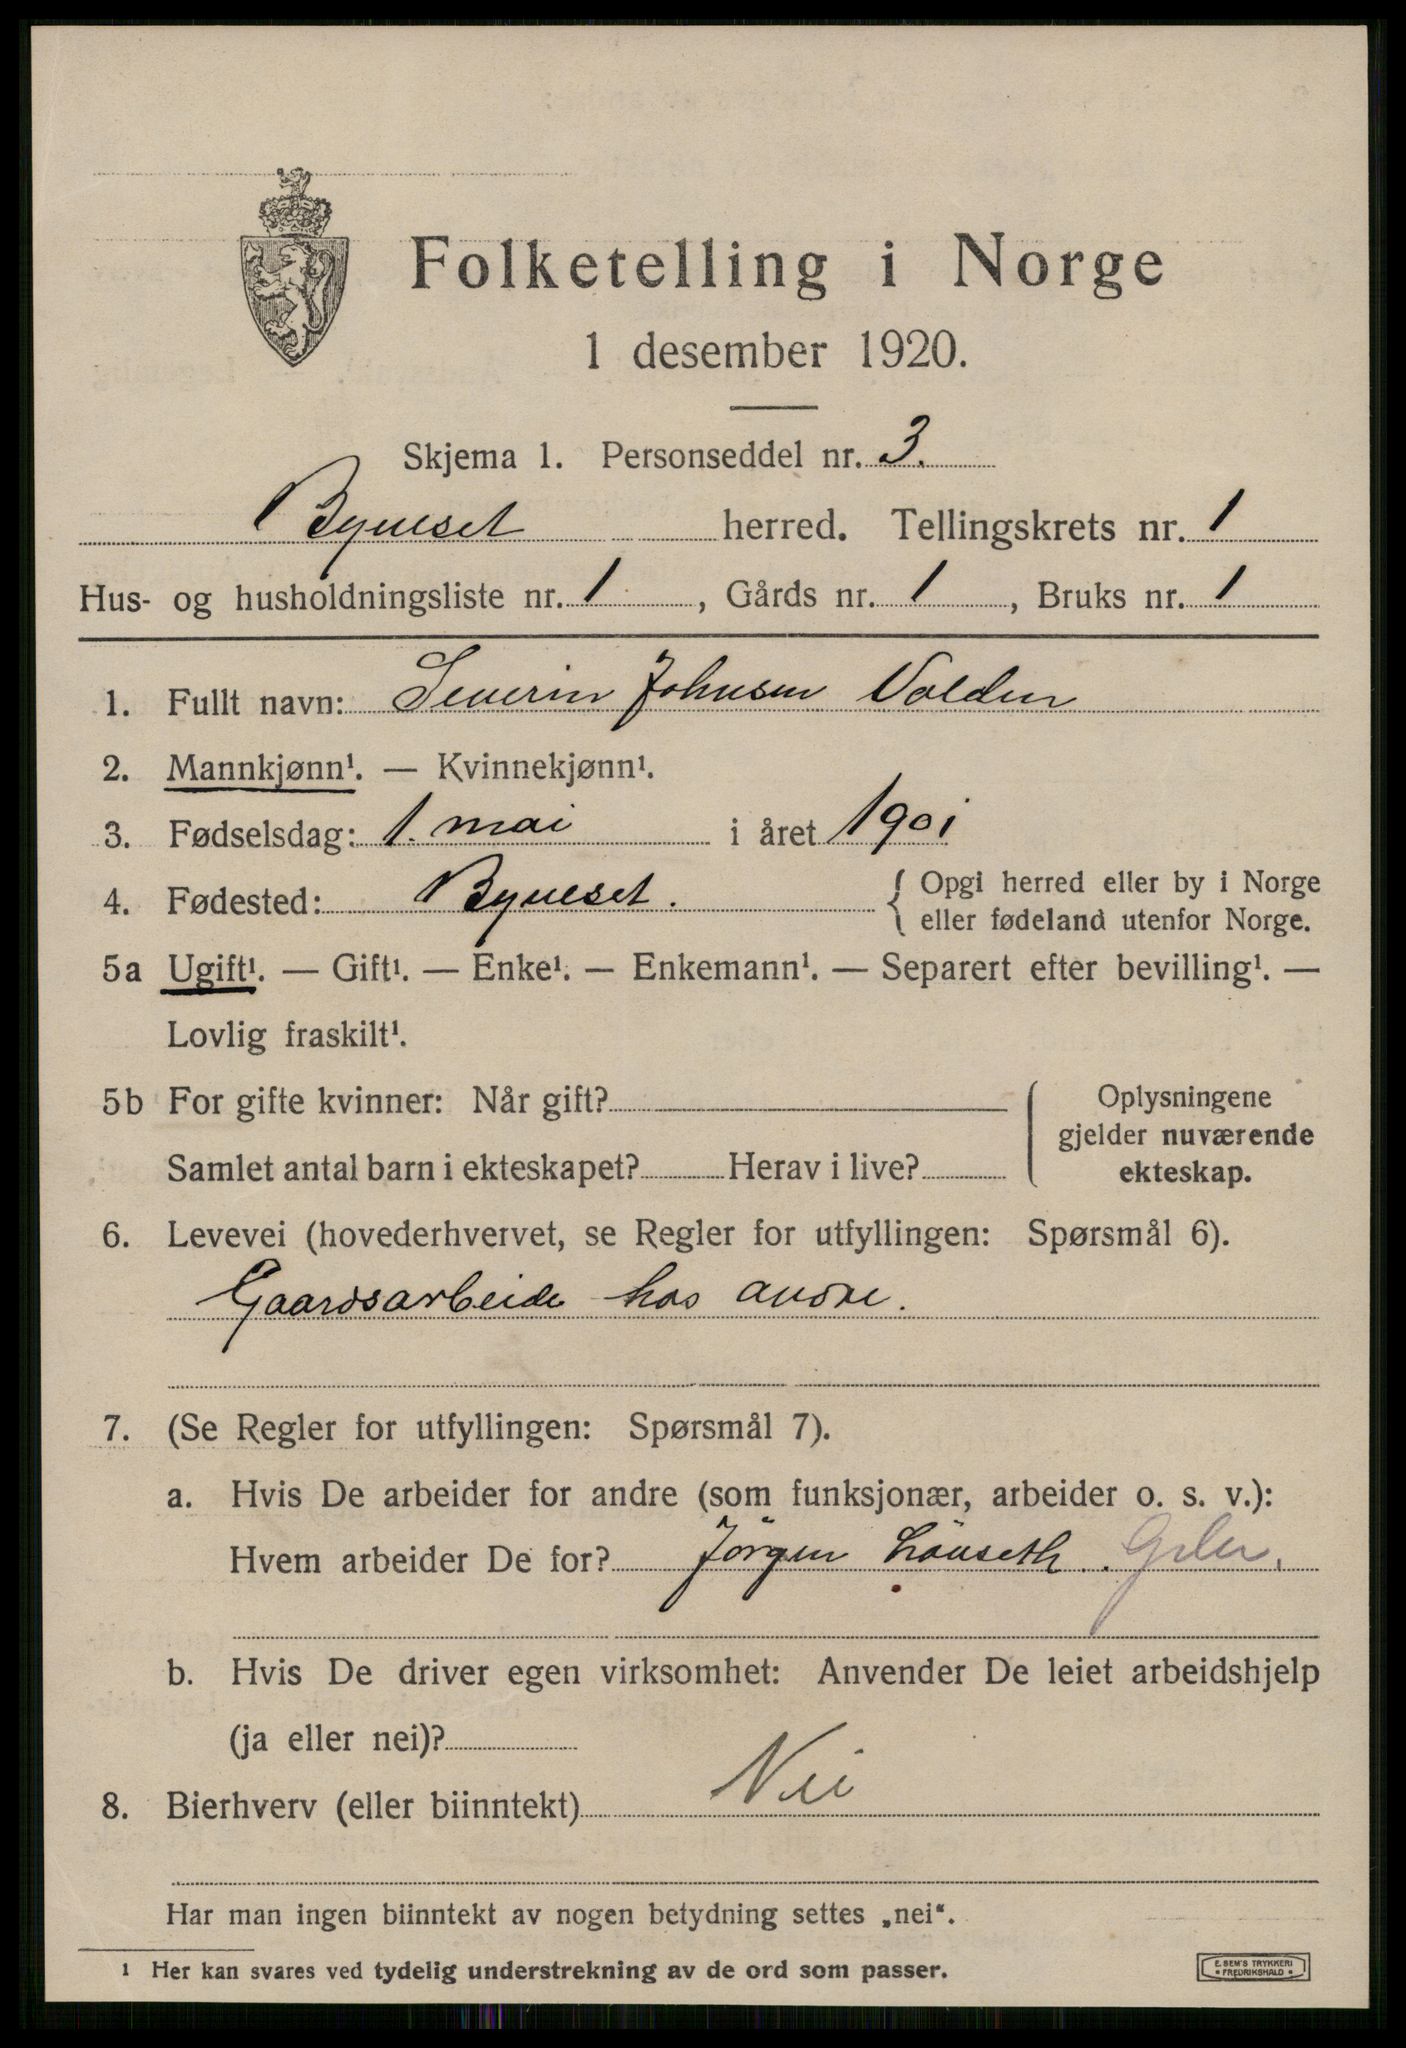 Folketelling i Norge
1 desember 1920.
Skjema 1. Personseddel nr. 3.
Byneset herred. Tellingskrets nr. 1
Hus- og husholdningsliste nr. 1, Gårds nr. 1, Bruks nr. 1
1. Fullt navn: Severin Johnsen Volden
2. Mannkjønn¹. — Kvinnekjønn¹.
3. Fødselsdag: 1. mai i året 1901
4. Fødested: Byneset. { Opgi herred eller by i Norge
eller fødeland utenfor Norge.
5a Ugift¹. — Gift¹. — Enke¹. — Enkemann¹. — Separert efter bevilling¹. —
Lovlig fraskilt¹.
5b For gifte kvinner: Når gift?
Samlet antal barn i ekteskapet? Herav i live?
Oplysningene
gjelder nuværende
ekteskap.
6. Levevei (hovederhvervet, se Regler for utfyllingen: Spørsmål 6).
Gaardsarbeide hos andre.
7. (Se Regler for utfyllingen: Spørsmål 7).
a. Hvis De arbeider for andre (som funksjonær, arbeider o. s. v.):
Hvem arbeider De for? Jörgen Lönseth.
b. Hvis De driver egen virksomhet: Anvender De leiet arbeidshjelp
(ja eller nei)?
8. Bierhverv (eller biinntekt) Nei
Har man ingen biinntekt av nogen betydning settes „nei“.
1 Her kan svares ved tydelig understrekning av de ord som passer.
E. SEM'S TRYKKERI
• FREDRIKSHALD •